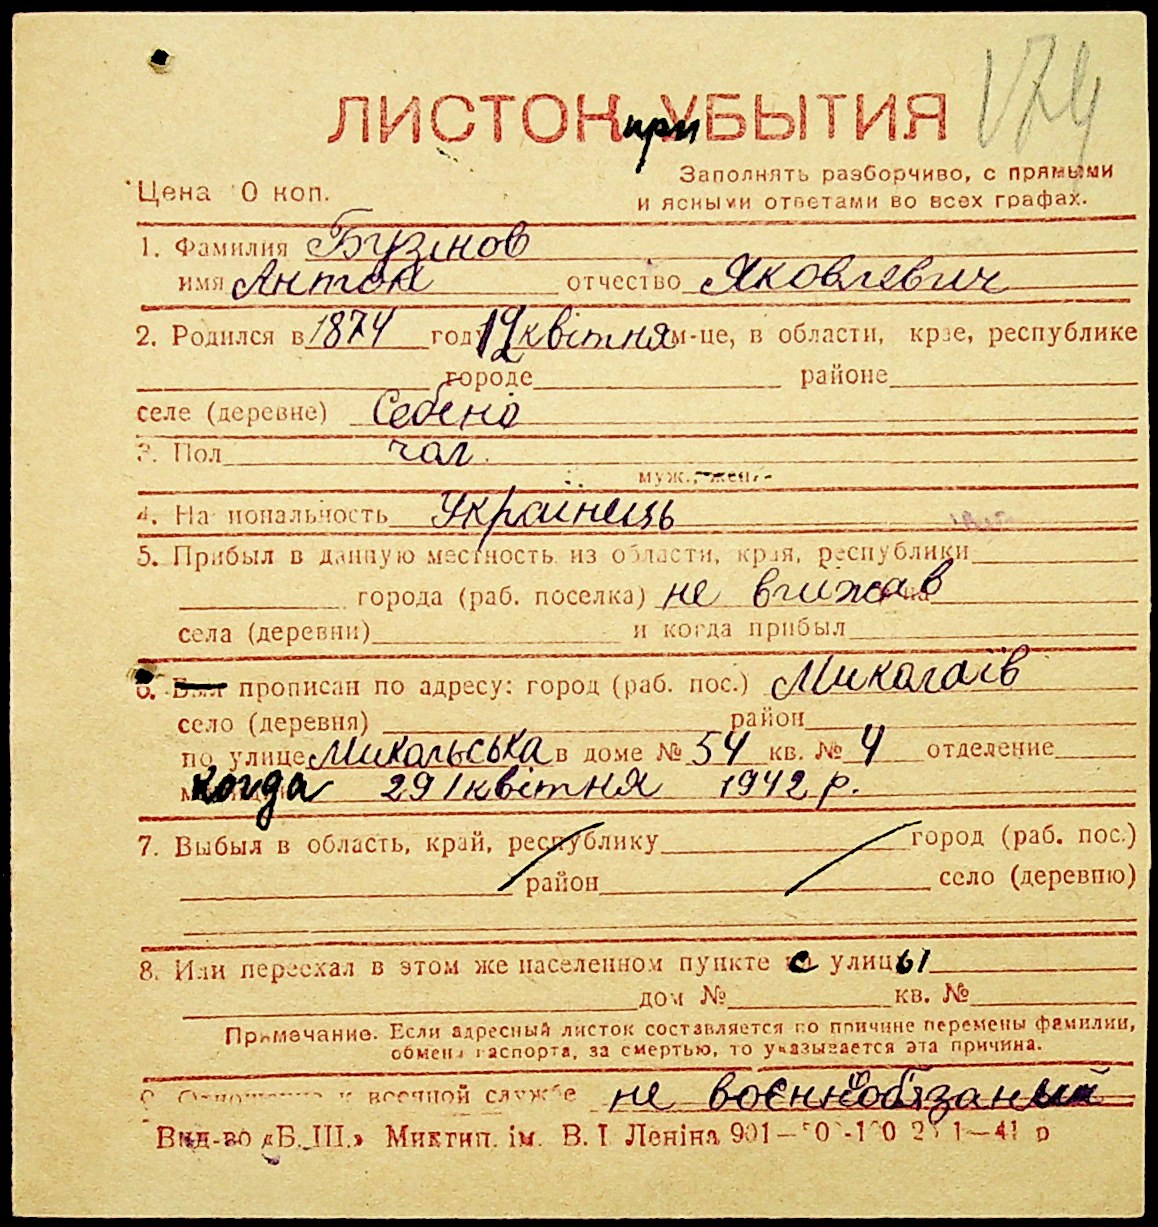 174
ЛИСТОК при УБЫТИЯ
Заполнять разборчиво, с прямыми
Цена 10 коп.
и ясными ответами во всех графах.
1. Фамилия Бузінов
имя Антон отчество Яковлевич
2. Родился в 1874 году 12 квітня м-це, в области, крае, республике
городе районе
селе (деревне) Себено
3. Пол чол.
муж., жен.
4. Национальность Українець
5. Прибыл в данную местность из области, края, республики
города (раб. поселка) не виїжав
села (деревни) и когда прибыл
6. Был прописан по адресу: город (раб. пос.) Миколаїв
село (деревня) район
по улице Микольська в доме № 54 кв. № 4 отделение
когда 29 квітня 1942 р.
7. Выбыл в область, край, республику город (раб. пос.)
район село (деревню)
8. Или переехал в этом же населенном пункте с улицы
дом № кв. №
Примечание. Если адресный листок составляется по причине перемены фамилии,
обмена паспорта, за смертью, то указывается эта причина.
9. Отношение к военной службе не воєннообязаний
Вид-во «Б. Ш.» Миктип. ім. В. І Леніна 901—